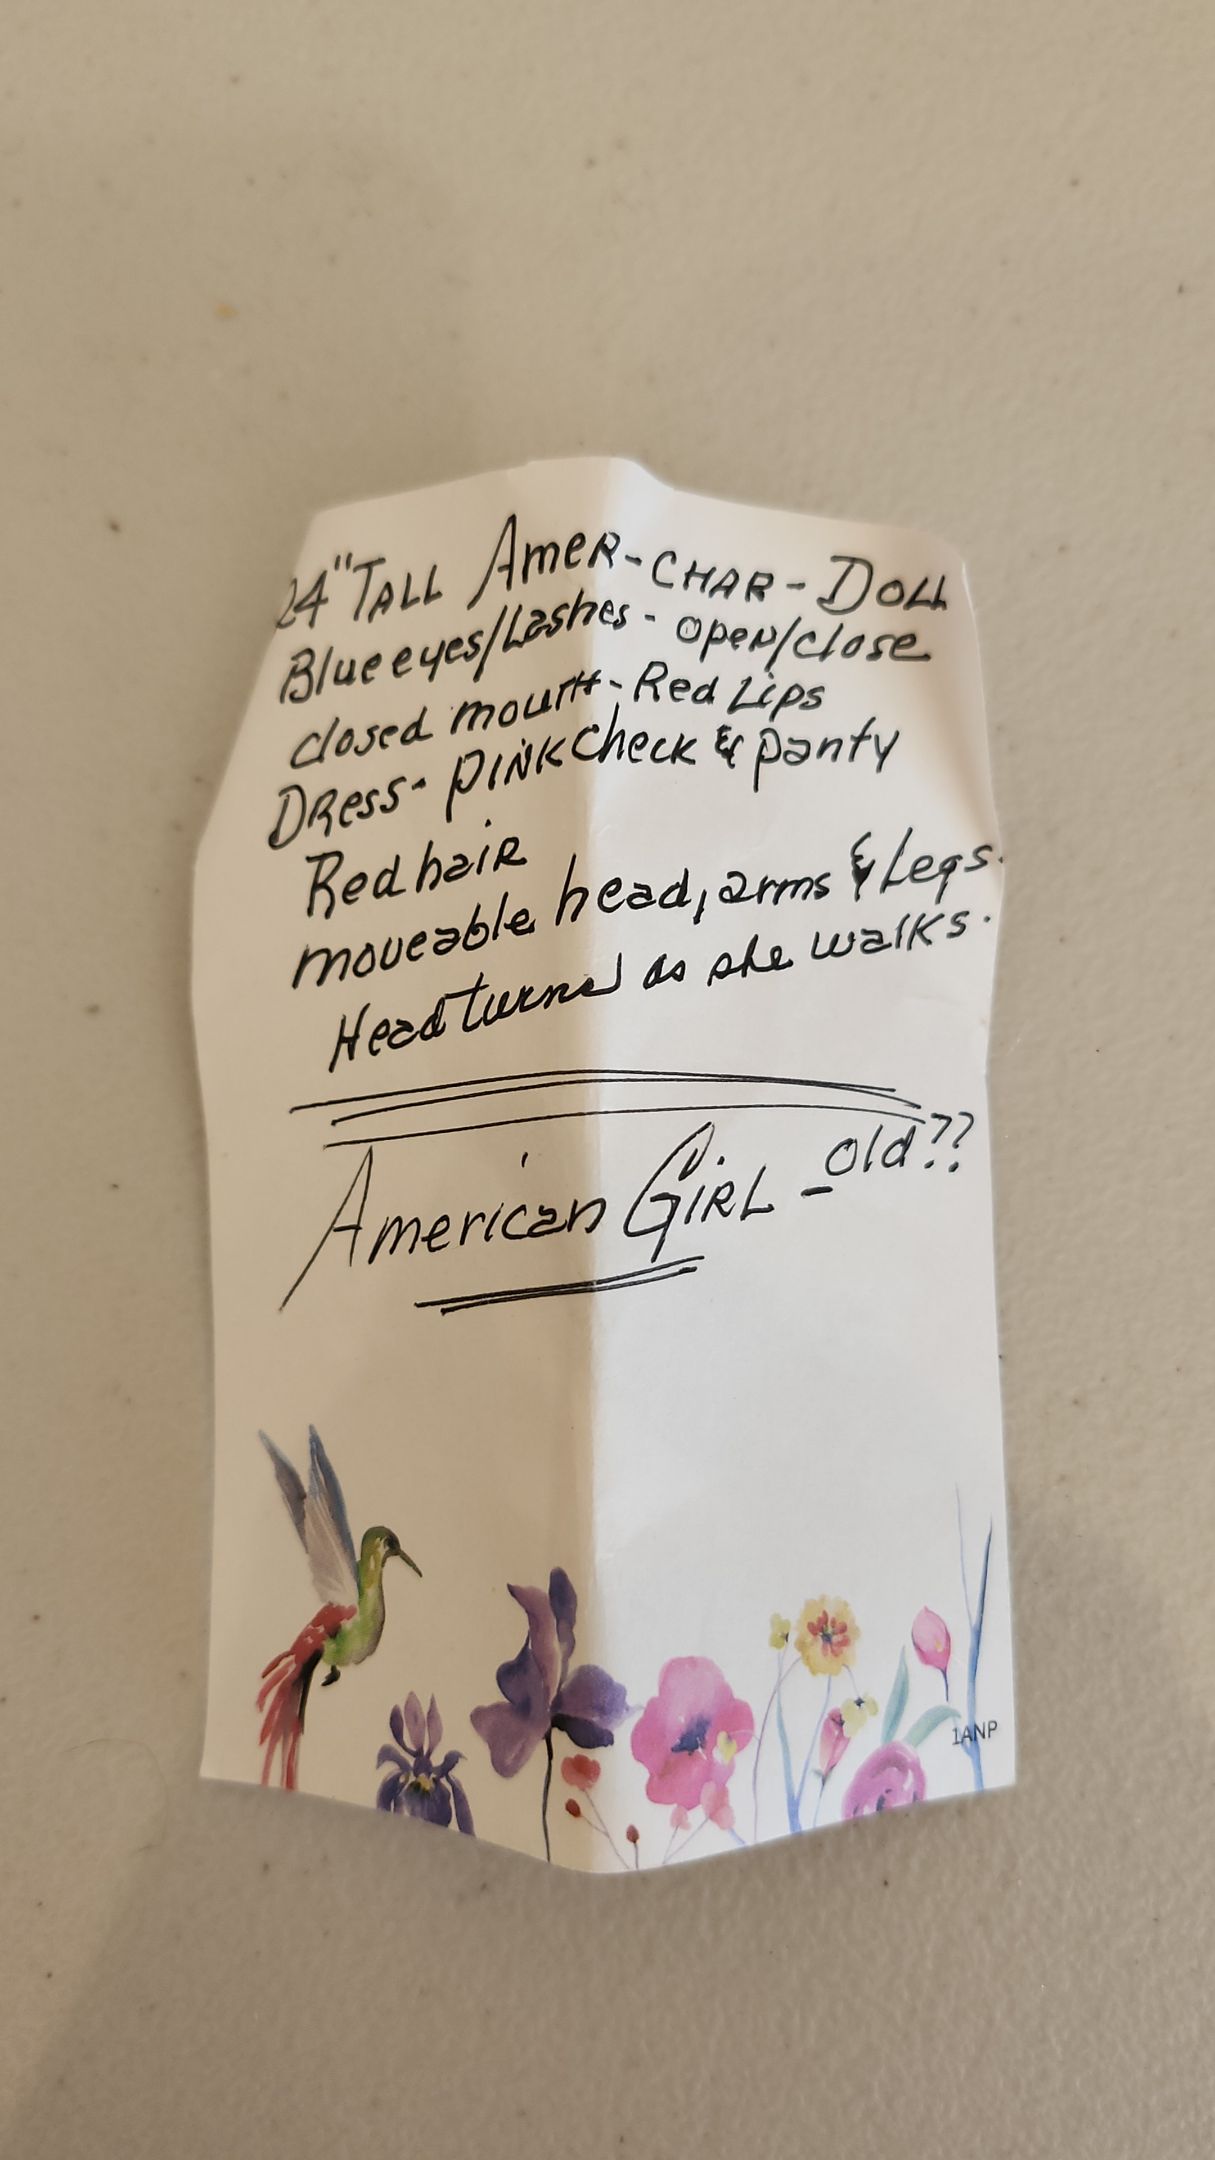 24" TALL AmeR-CHAR-DOLL
Blue eyes/Lashes - open/close
closed mouTH - Red Lips
DRess - PINK Check & panty
Red haiR
moveable head, arms & Legs.
Head turns as she walks.
American GiRL - old??
1ANP